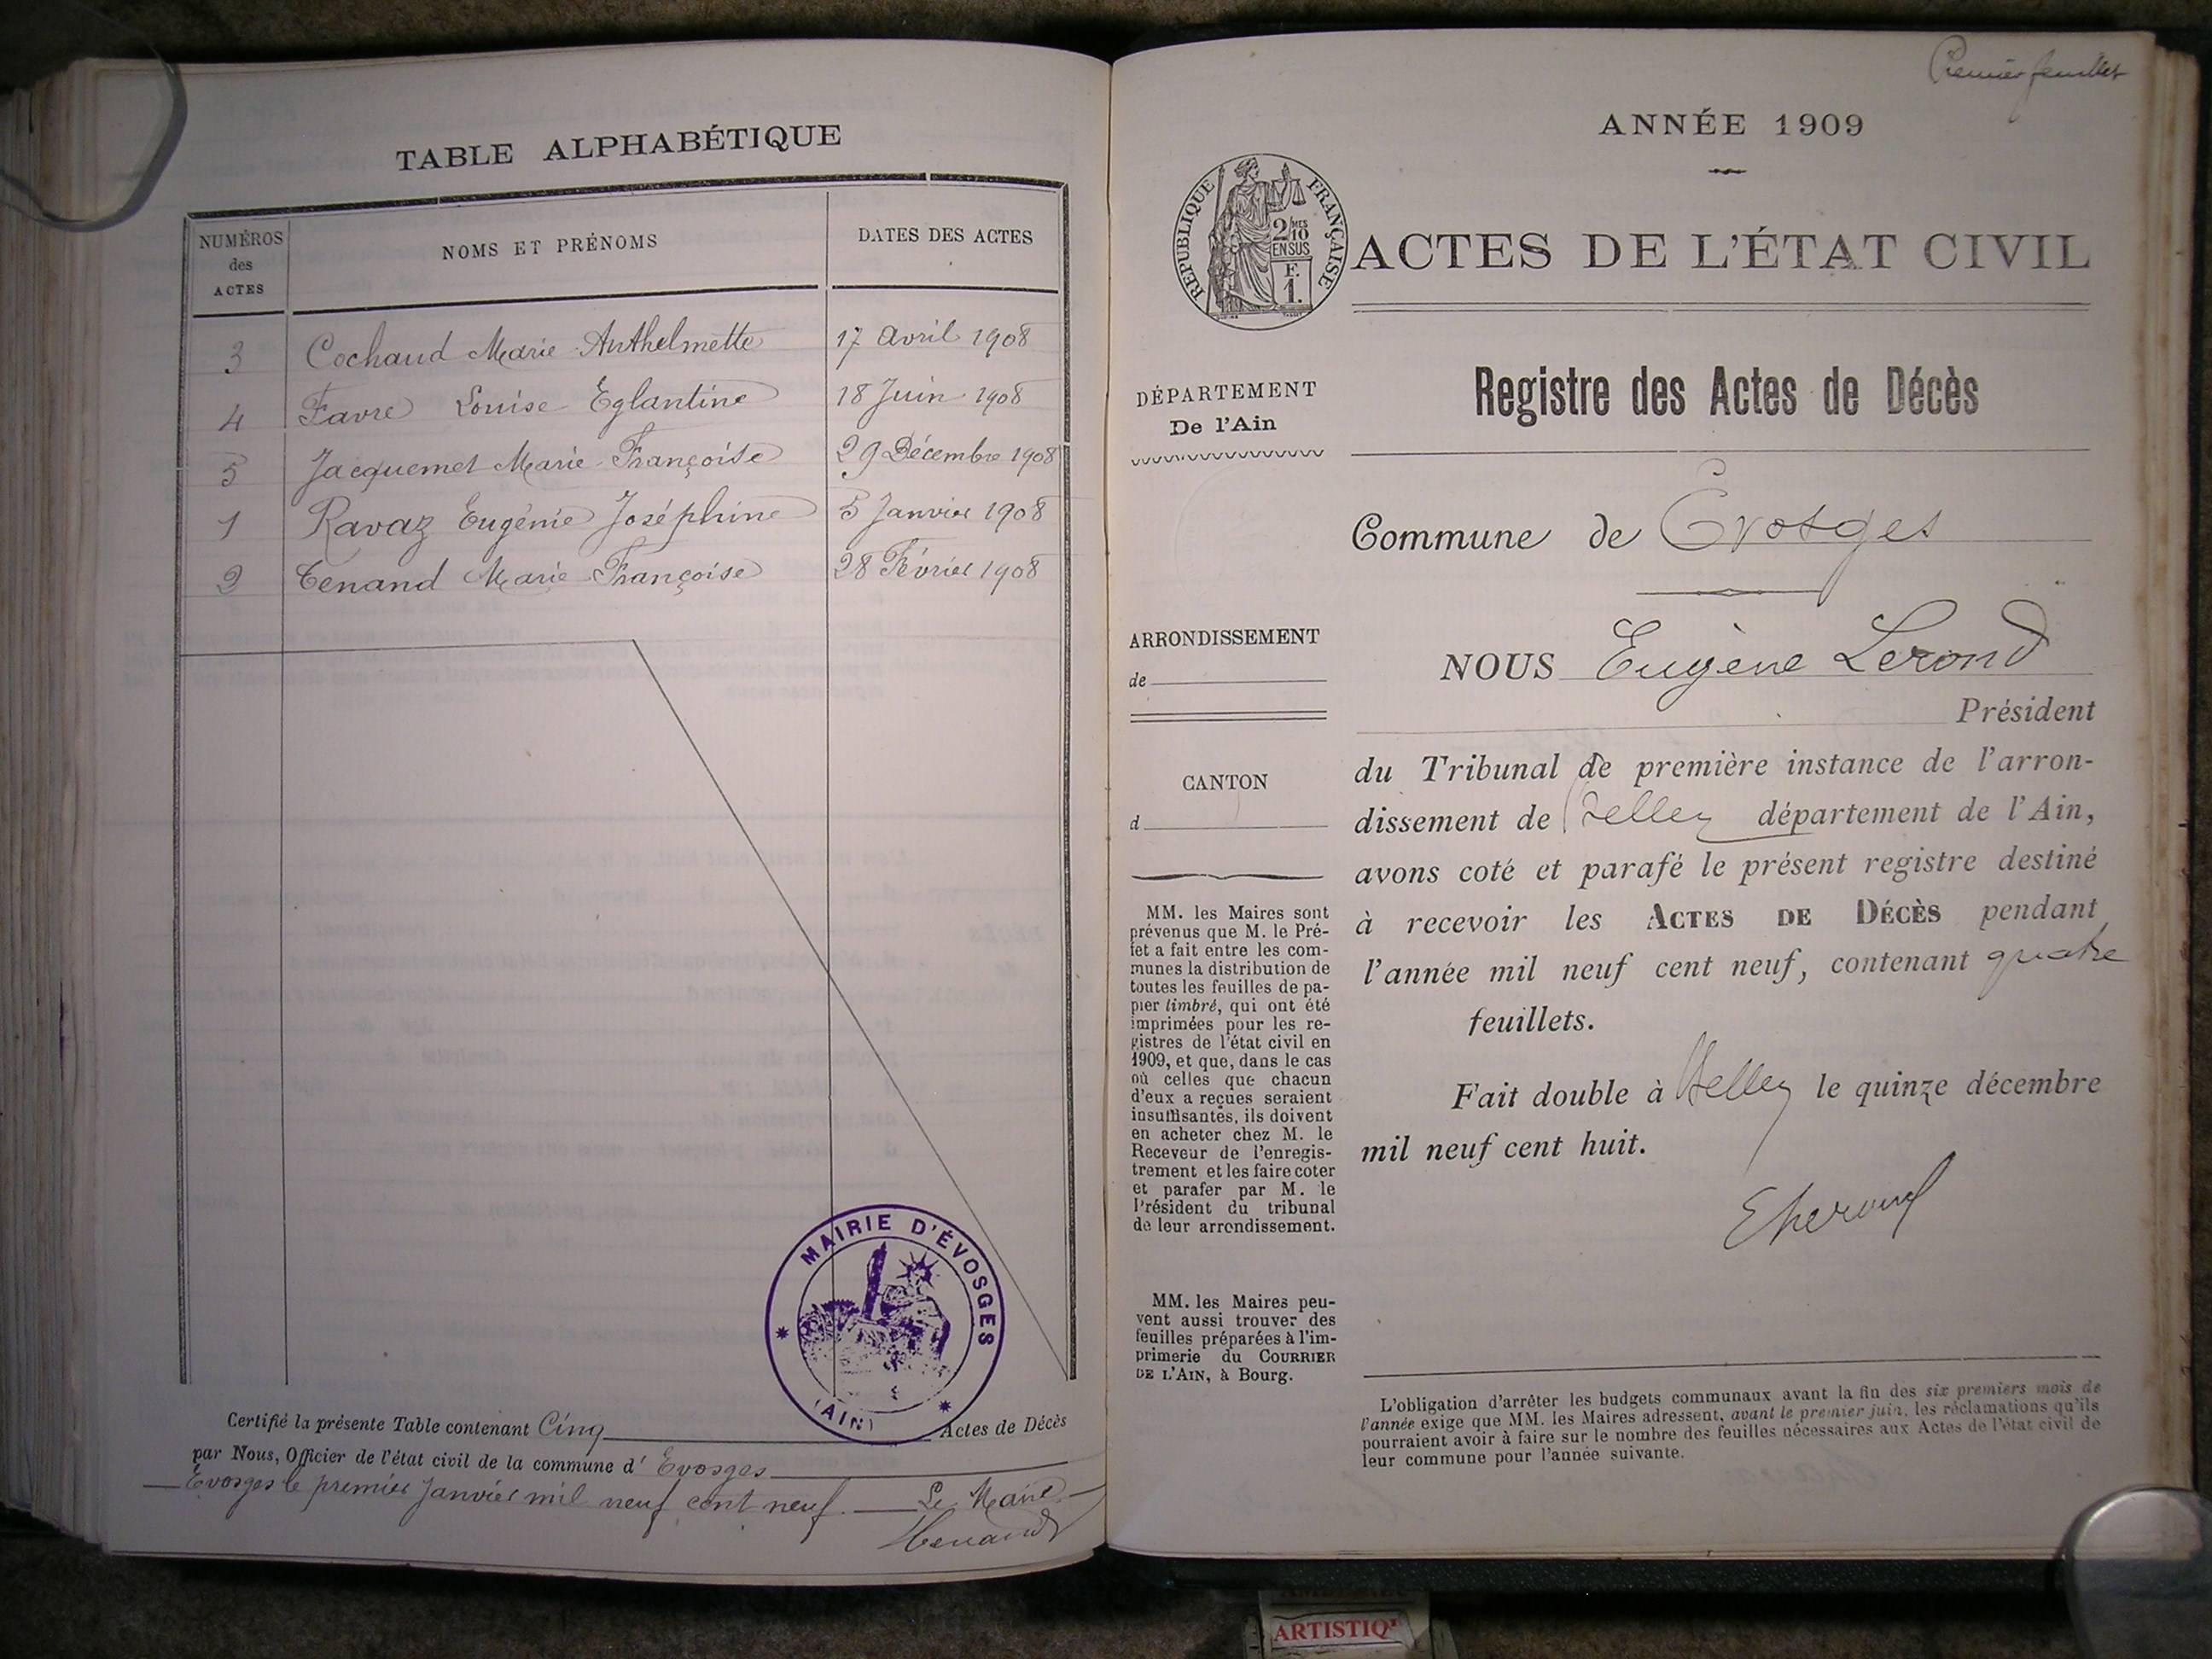 TABLE ALPHABÉTIQUE
NUMÉROS des ACTES
NOMS ET PRÉNOMS
DATES DES ACTES
3 Cochaud Marie Anthelmette 17 avril 1908
4 Favre Louise Eglantine 18 Juin 1908
5 Jacquemet Marie Françoise 29 Décembre 1908
1 Ravaz Eugénie Joséphine 5 Janvier 1908
2 Tenand Marie Françoise 28 Février 1908
MAIRIE D'ÉVOSGES
(AIN)
Certifié la présente Table contenant Cinq Actes de Décès
par Nous, Officier de l'état civil de la commune d' Evosges
Evosges le premier Janvier mil neuf cent neuf. Le Maire
Tenand
Premier feuillet
ANNÉE 1909
RÉPUBLIQUE FRANÇAISE
2/10 MES
EN SUS
F.
1.
ACTES DE L'ÉTAT CIVIL
Registre des Actes de Décès
DÉPARTEMENT
De l'Ain
Commune de Evosges
ARRONDISSEMENT
de
NOUS Eugène Lerond
Président
CANTON
d
du Tribunal de première instance de l'arron-
dissement de Belley département de l'Ain,
avons coté et parafé le présent registre destiné
à recevoir les ACTES DE DÉCÈS pendant
l'année mil neuf cent neuf, contenant quatre
feuillets.
Fait double à Belley le quinze décembre
mil neuf cent huit.
MM. les Maires sont
prévenus que M. le Pré-
fet a fait entre les com-
munes la distribution de
toutes les feuilles de pa-
pier timbré, qui ont été
imprimées pour les re-
gistres de l'état civil en
1909, et que, dans le cas
où celles que chacun
d'eux a reçues seraient
insuffisantes, ils doivent
en acheter chez M. le
Receveur de l'enregis-
trement et les faire coter
et parafer par M. le
Président du tribunal
de leur arrondissement.
MM. les Maires peu-
vent aussi trouver des
feuilles préparées à l'im-
primerie du COURRIER
DE L'AIN, à Bourg.
L'obligation d'arrêter les budgets communaux avant la fin des six premiers mois de
l'année exige que MM. les Maires adressent, avant le premier juin, les réclamations qu'ils
pourraient avoir à faire sur le nombre des feuilles nécessaires aux Actes de l'état civil de
leur commune pour l'année suivante.
ARTISTIQ